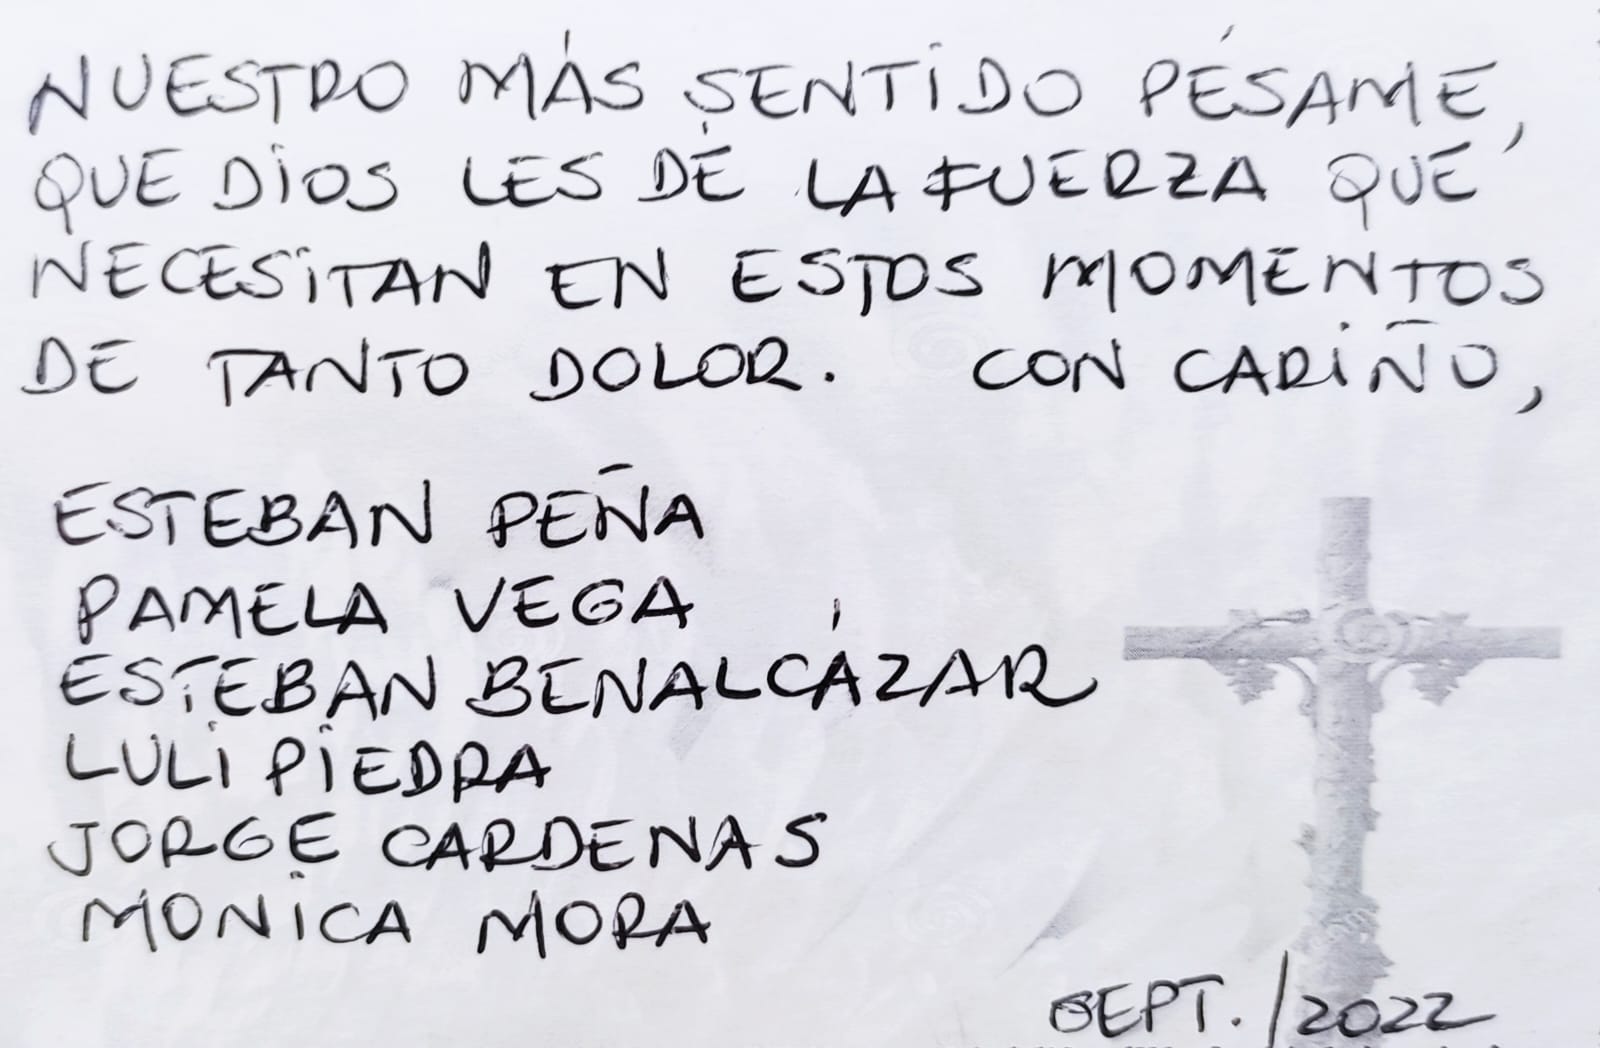 NUESTRO MÁS SENTIDO PÉSAME,
QUE DiOS LES DÉ LA FUERZA QUE
NECESiTAN EN ESTOS MOMENTOS
DE TANTO DOLOR. CON CARiÑO,
ESTEBAN PEÑA
PAMELA VEGA
ESTEBAN BENALCÁZAR
LULi PiEDRA
JORGE CARDENAS
MONiCA MORA
SEPT./2022